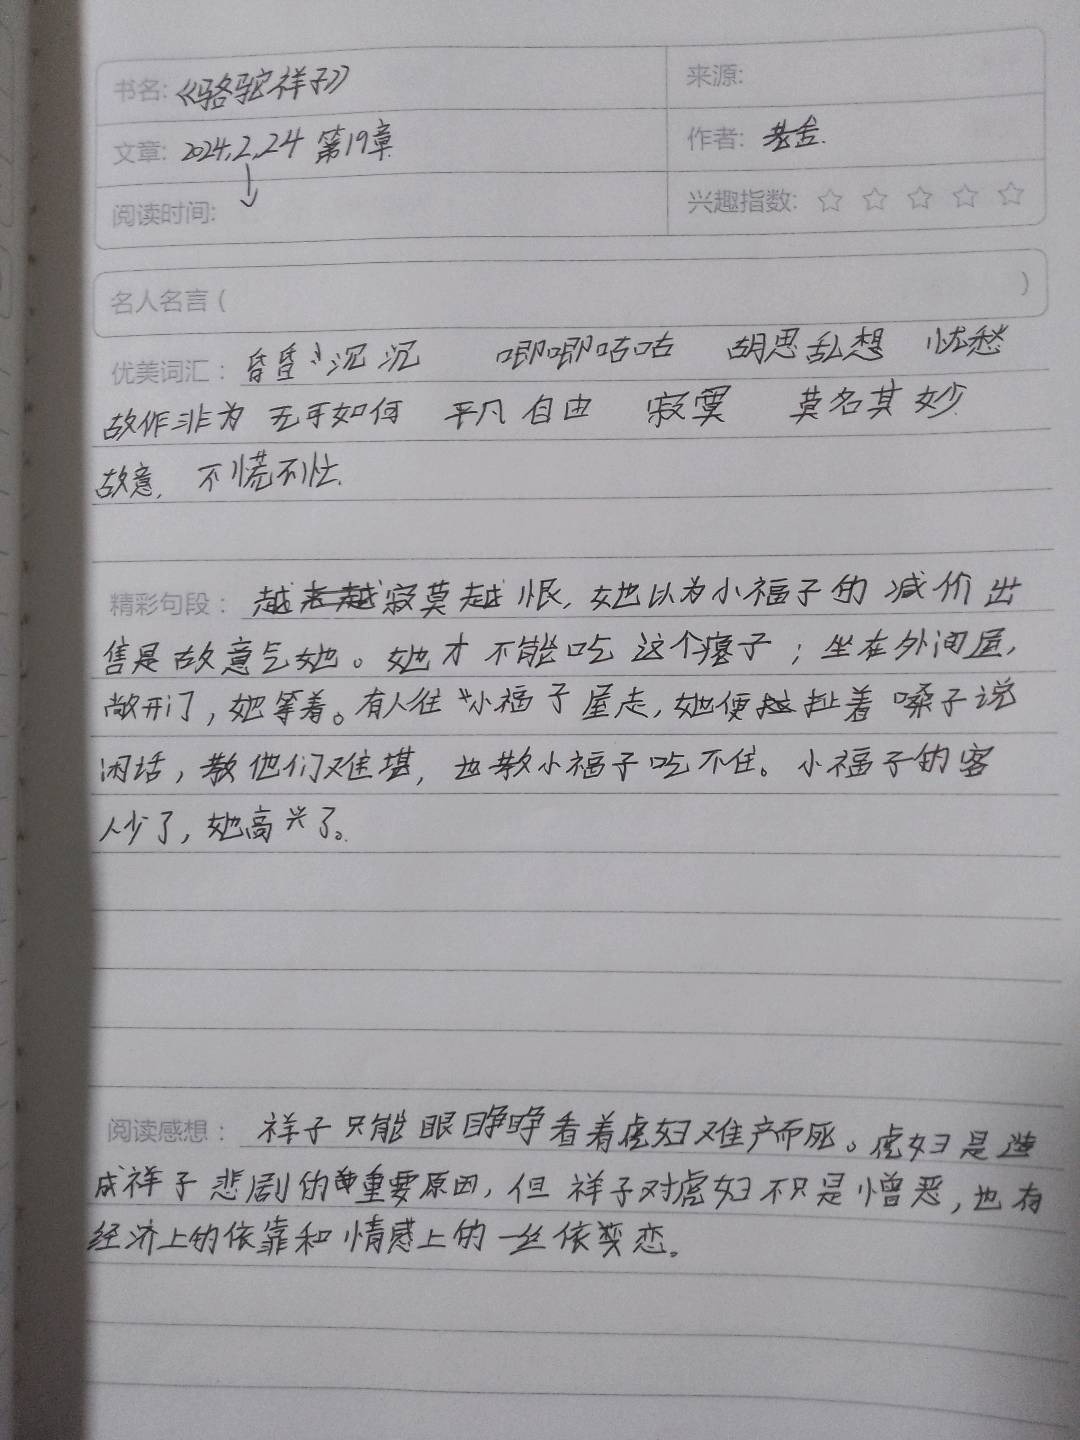 书名:《骆驼祥子》 来源:
文章: 2024.2.24 第19章 作者: 老舍.
阅读时间: 兴趣指数: ☆ ☆ ☆ ☆ ☆
名人名言 ( )
优美词汇: 昏昏沉沉 唧唧咕咕 胡思乱想 忧愁
故作非为 无可如何 平凡 自由 寂寞 莫名其妙
故意, 不慌不忙.
精彩句段: 越寂莫越恨,她以为小福子的减价出
售是故意气她。她才不能吃这个瘪子;坐在外间屋,
敞开门,她等着。有人往小福子屋走,她便扯着嗓子说
闲话,教他们难堪,也教小福子吃不住。小福子的客
人少了,她高兴了。
阅读感想: 祥子只能眼睁睁看着虎妞难产而死。虎妞是造
成祥子悲剧的重要原因,但祥子对虎妞不只是憎恶,也有
经济上的依靠和情感上的一丝依恋。